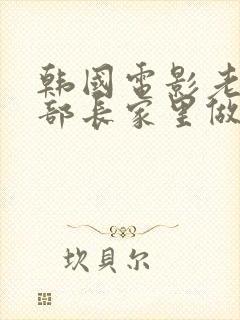 韩國電影老
部長家里做
坎貝尔